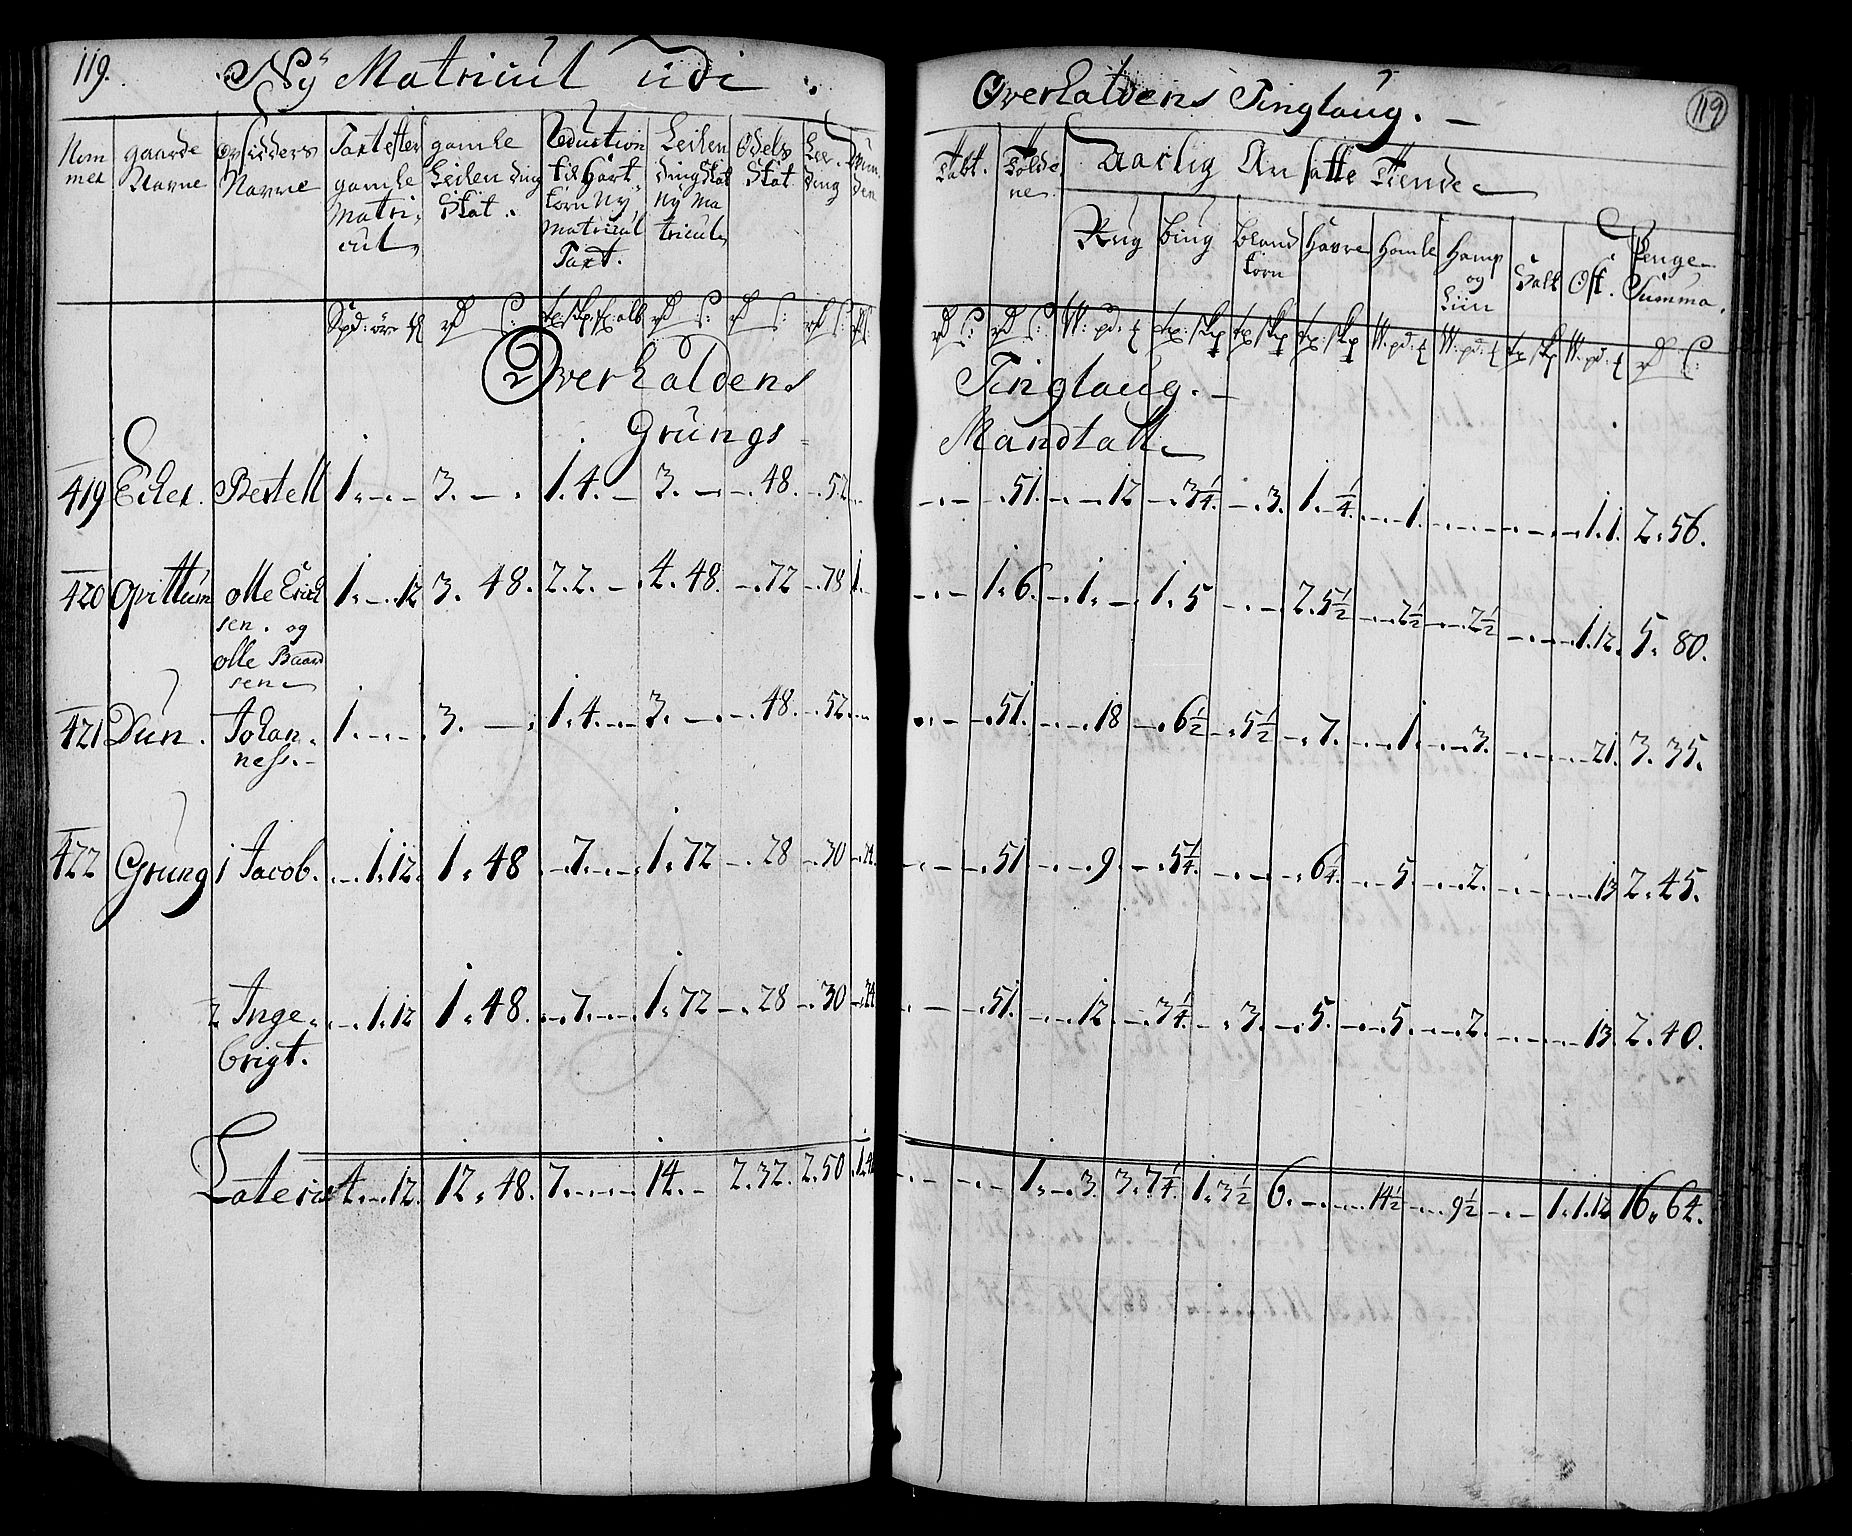 119. Ny Matricul udi Overhaldens Tinglaug. 119
Nom mer | gaarde Navne | Opsidders Navne | Taxt efter gamle Matri cul | gamle Leilending Skat. | Reduction til Hart korn Ny Matricul Taxt. | Leilen dingskat Ny Ma tricul | Odels Skat | Lee- ding
Fødde ne. | Aarlig Ansatte Tiende
Rug | Biug | bland korn | Havre | Homle | Hamp og Liin | Salt | Ost. | Penge- Summa.
Overhaldens Tinglaug.
Grungs Mandtall
419 Eiler. Bertell 1. - . - 3. - . 1. 4. - 3. - - . 48. - . 52 - . - - . 51. - . - . 12 - . 3 1/4. - . 3. 1. 1/4. - . - . 1. - . - . - . - . 1. 1. 2. 56.
420 Opittum olle Erich sen. og olle Baard sen 1. - . 12 3. 48. 2. 2. - . 4. 48. - . 72 - . 78 1. - - . - 1. 6. - . 1. - . 1. 5 - . - 2. 5 1/2 - . - . 2 1/2 - . - . 2 1/2 - . - . - . 1. 12. 5. 80.
421 Dun. Johan nes. 1. - . - . 3. - . 1. 4. - . - 3. - . - . 48. - . 52. - . - . - - . 51. - . - . 18 - . 6 1/2 - . 5 1/2 - . 7. - . - . 1. - . - . 3. - . - . - . - . 21. 3. 35.
422 Grung 1 Jacob. - . 1. 12. 1. 48 - . 7. - . - . 1. 72 - . 28 - . 30 - . 24. - . - - . 51 - . - . 9. - . 5 1/4. - . - . - . 6 1/4. - . - . 5. - . - . 2. - . - . - . - . 13 2. 45.
2 Inge brigt. - . 1. 12 1. 48. - . 7. - . - . 1. 72 - . 28 - . 30 - . 24 - . - - . 51. - . - . 12. - . 3 1/4. - . 3. - . 5. - . - . 5. - . - . 2. - . - . - . - . 13. 2. 40.
Lateris 4. - . 12. 12. 48. 7. - . - . - 14. - 2. 32. 2. 50. - . - - . - 1. - . 3. 3. 7 1/4. 1. 3 1/2 6. - . - . - . 14 1/2 - . - . 9 1/2 - . - 1. 1. 12 16. 64.